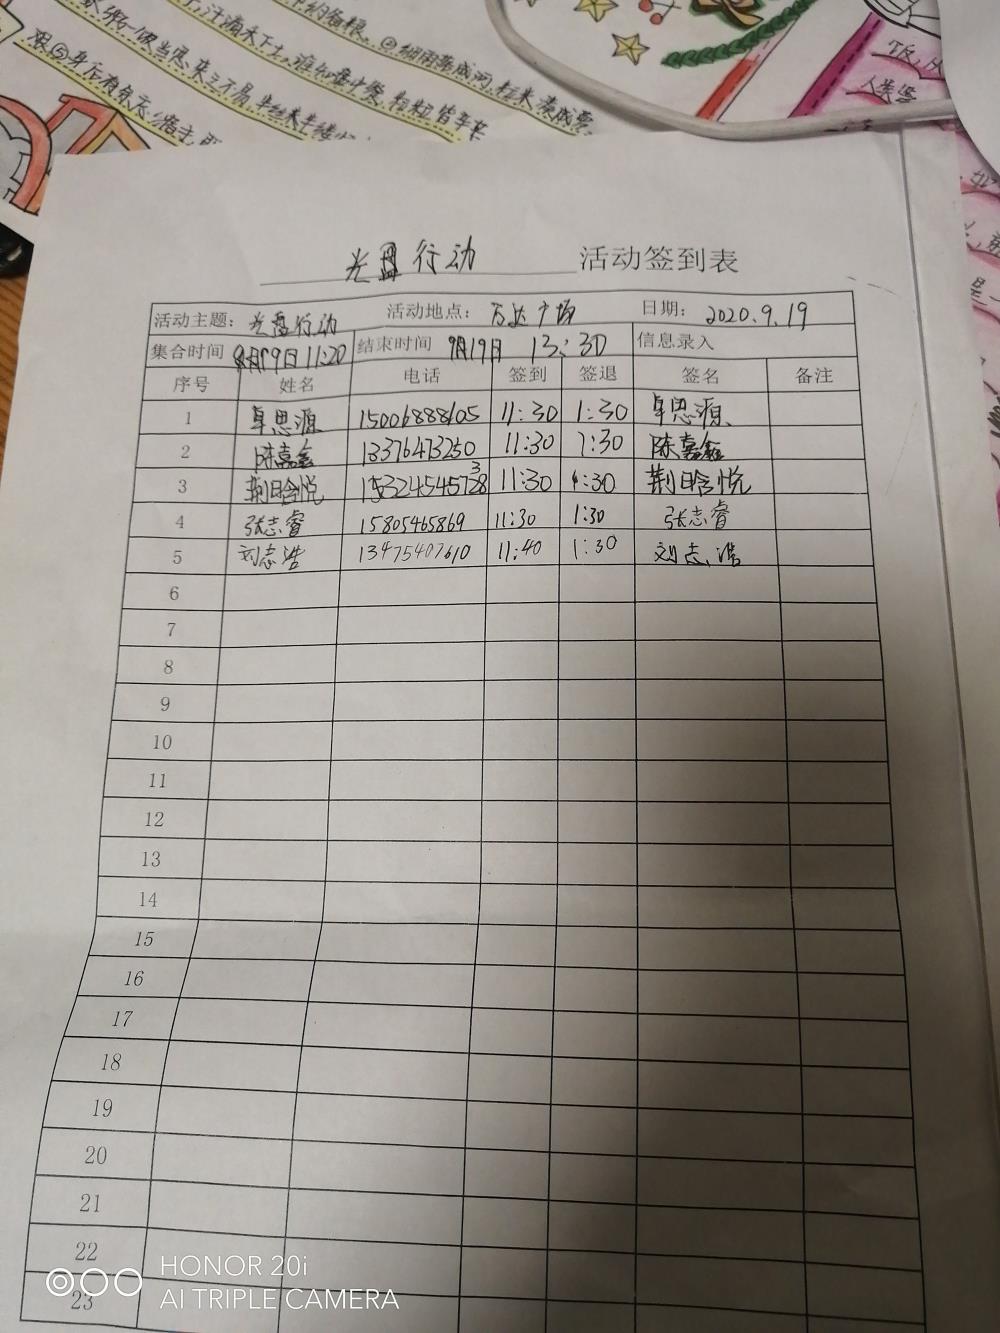 汗滴禾下土。谁知盘中餐,粒粒皆辛苦
光盘行动 活动签到表
活动主题: 光盘行动 活动地点: 万达广场 日期: 2020.9.19
集合时间 9月19日 11:20 结束时间 9月19日 13:30 信息录入
序号 姓名 电话 签到 签退 签名 备注
1 卓思源 15006888605 11:30 1:30 卓思源
2 陈嘉鑫 13376473250 11:30 1:30 陈嘉鑫
3 荆晗悦 11:30 1:30 荆晗悦
4 张志睿 15805465869 11:30 1:30 张志睿
5 刘志浩 13475407610 11:40 1:30 刘志浩
6
7
8
9
10
11
12
13
14
15
16
17
18
19
20
21
22
23
HONOR 20i
AI TRIPLE CAMERA